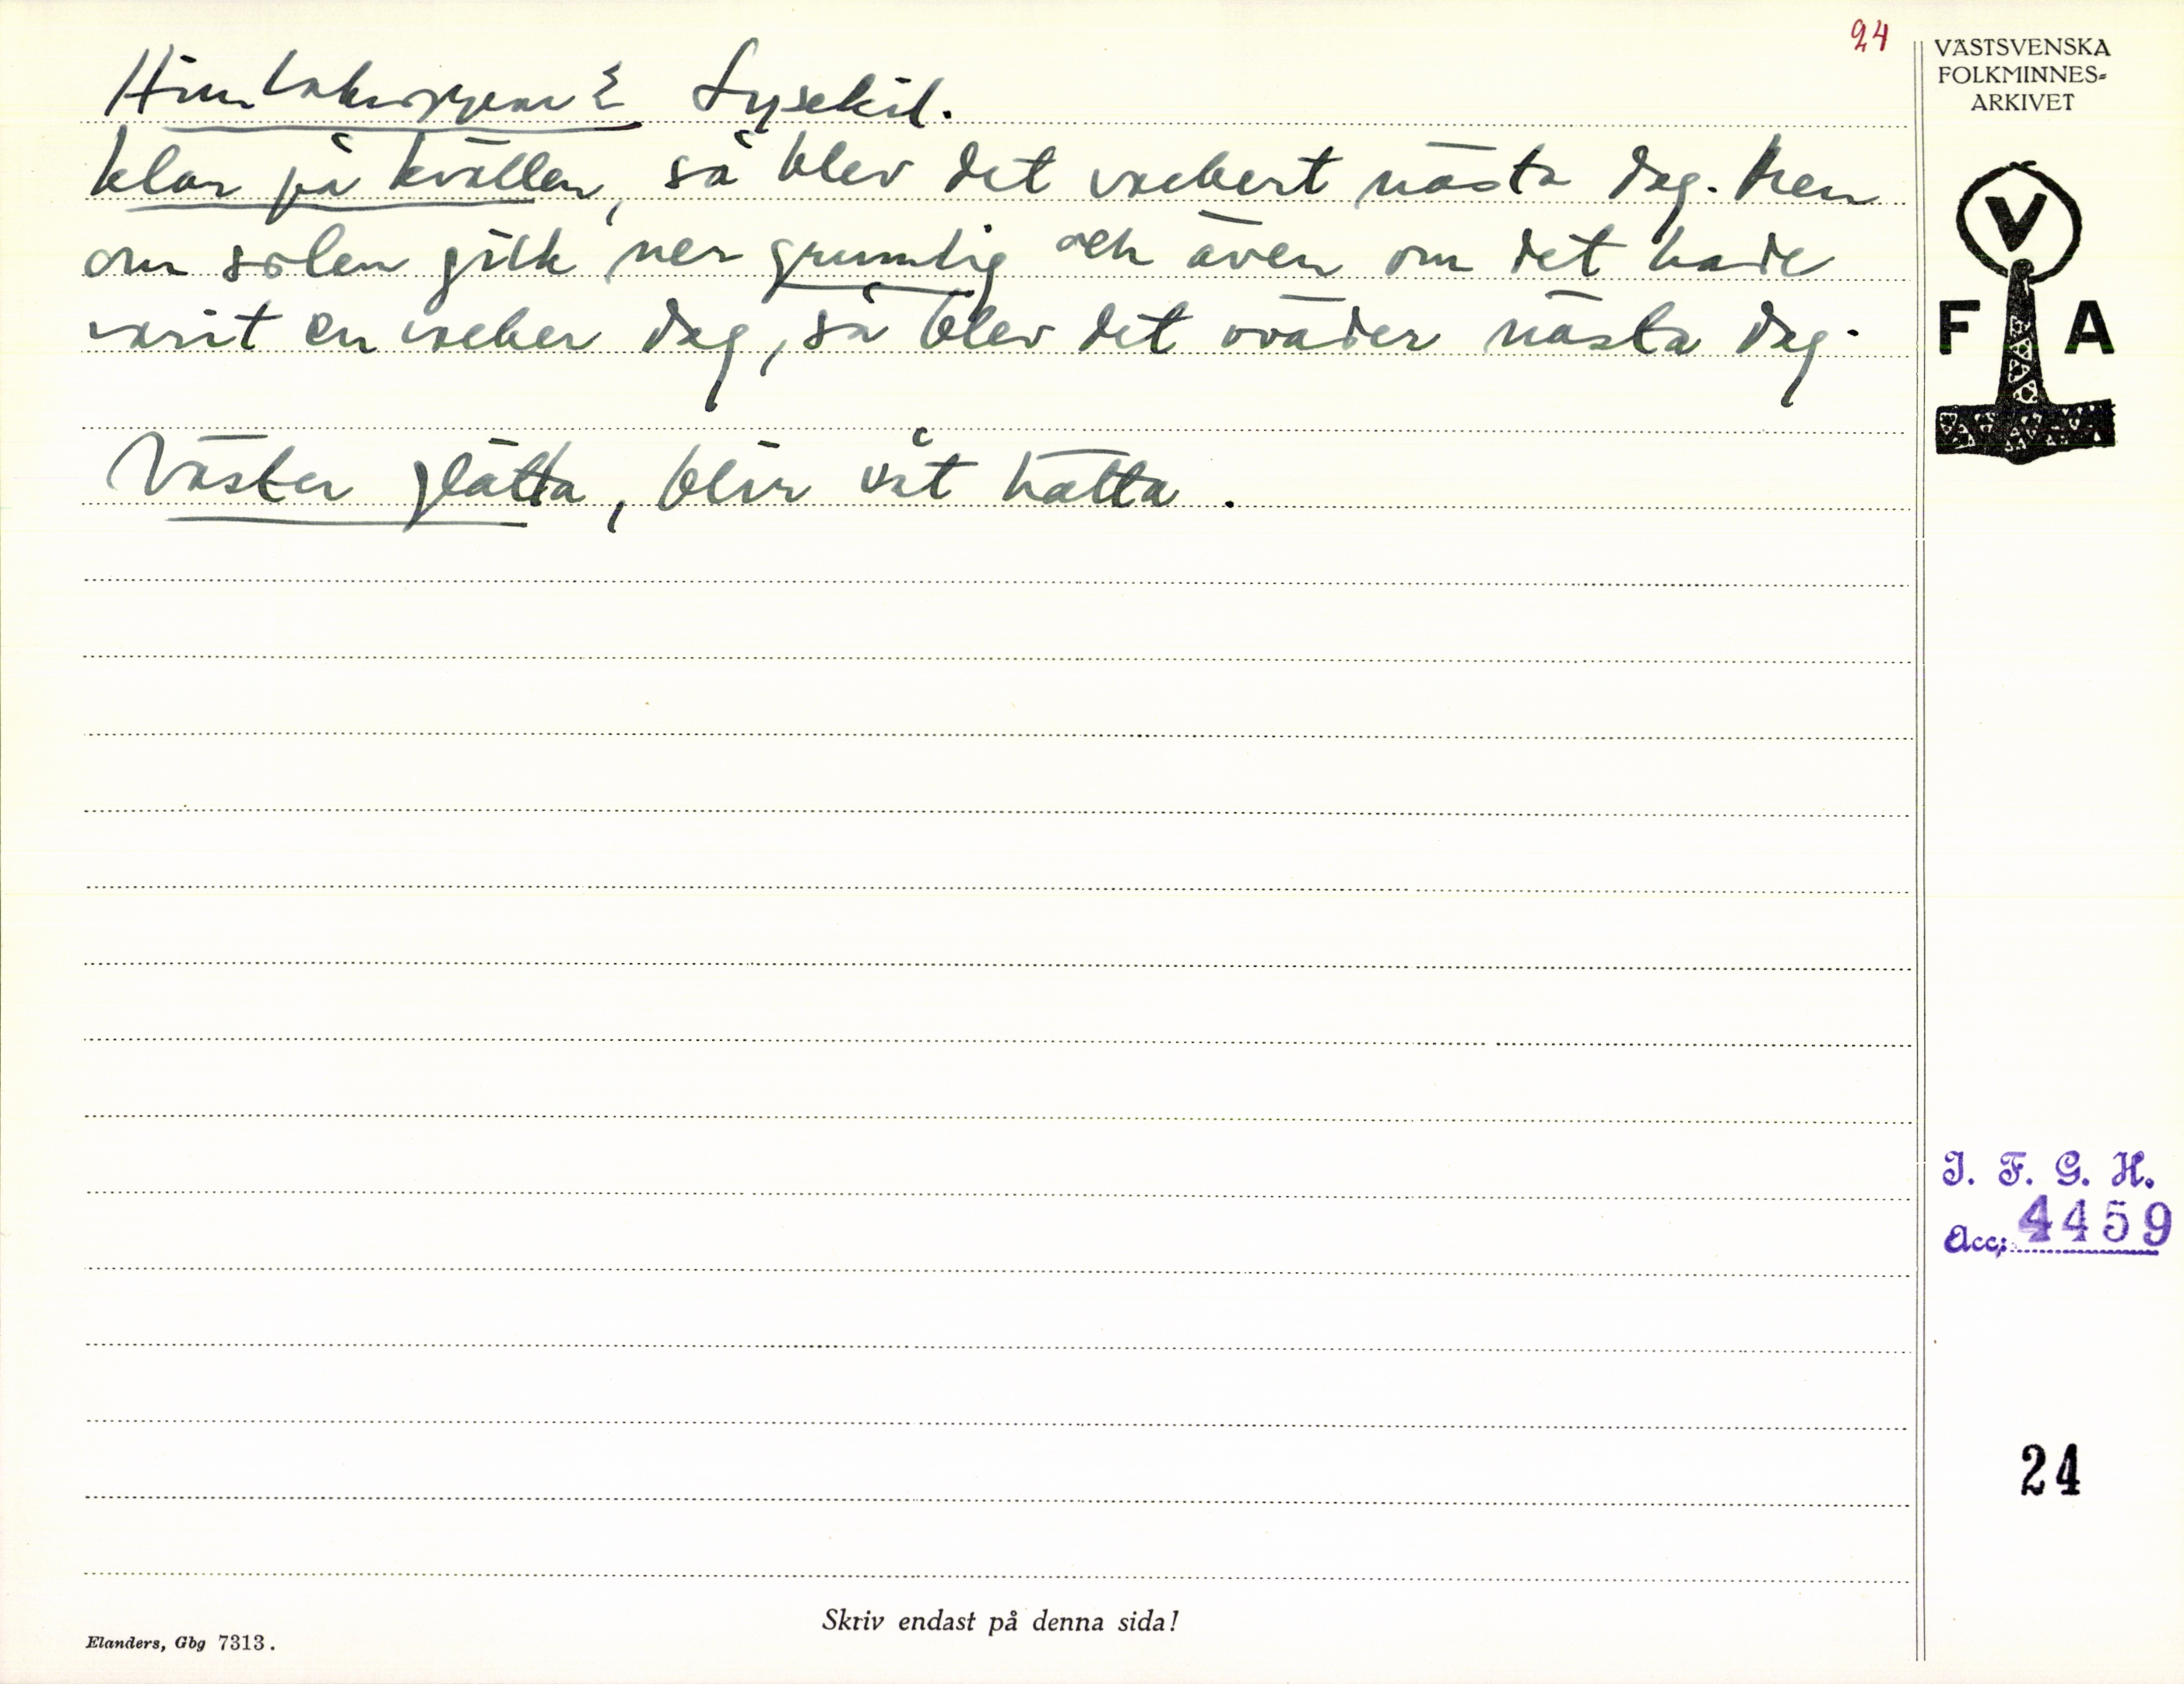 24
Himlakroppar 2 Lysekil.
klar på kvällen, så blev det vackert nästa dag. Men
om solen gick ner grumlig och även om det hade
varit en vacker dag, så blev det oväder nästa dag.
Väster glätta, blir våt hätta.
VÄSTSVENSKA
FOLKMINNES=
ARKIVET
V
F A
I. F. G. H.
Acc: 4459
24
Skriv endast på denna sida!
Elanders, Gbg 7313.